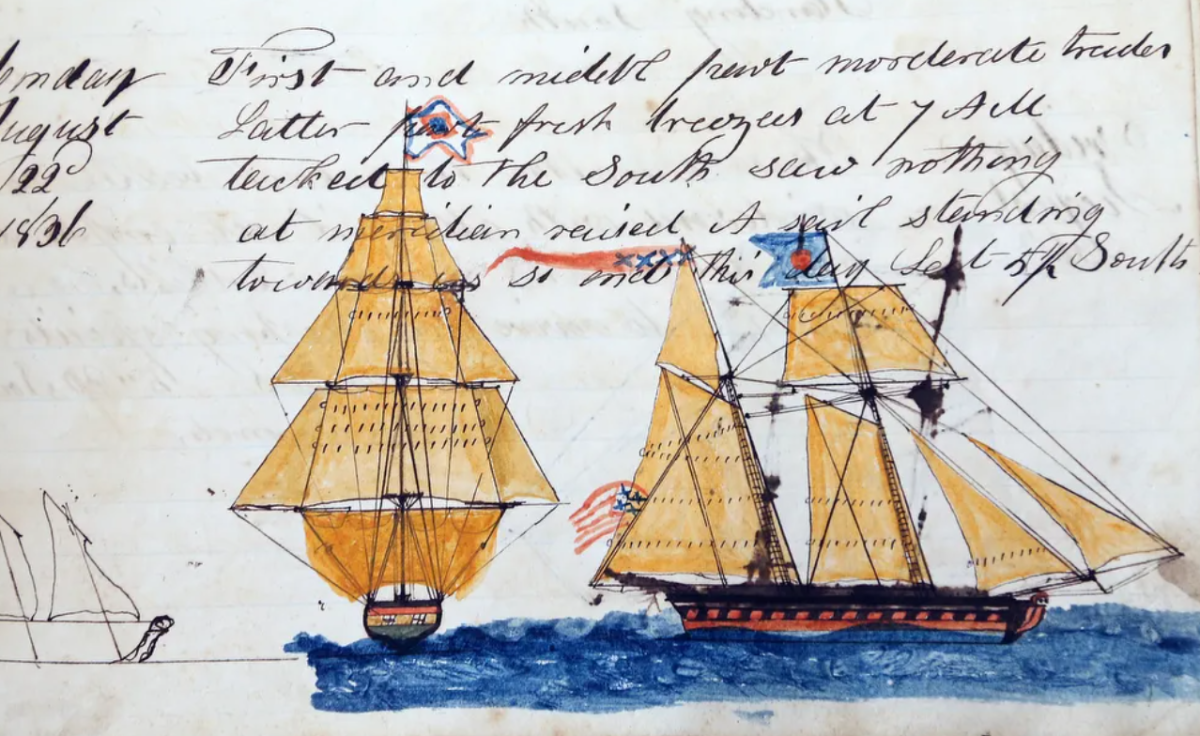 onday First and middel part morderate trades
ugust Latter part fresh breezes at 7 AM
22 tacked to the South saw nothing
1836 at meridian raised A sail standing
towards us so end this day Lat South